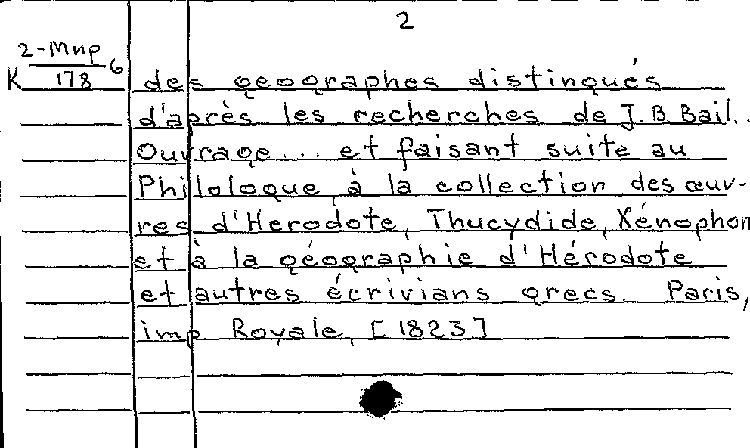 2
2-Мир
K 178 6
des geographes distingués
d'après les recherches de J.B Bail..
Ouvrage... et faisant suite au
Philologue, à la collection des œuv-
res d'Herodote, Thucydide, Xénophon
et à la géographie d'Hérodote
et autres écrivians grecs. Paris,
imp Royale, [1823]